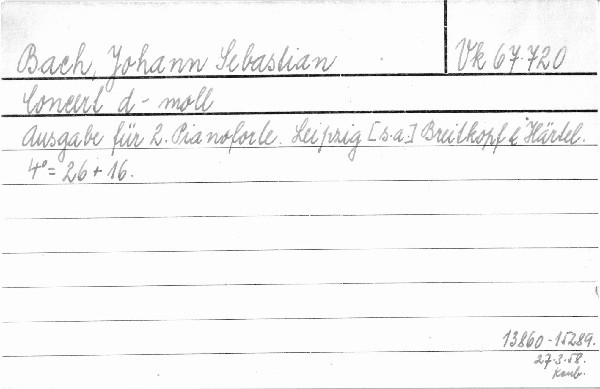 Bach, Johann Sebastian
Vk 67.720
Concert d-moll
Ausgabe für 2. Pianoforte. Leipzig [s.a.] Breitkopf & Härtel.
4° = 26 + 16.
13860-15289.
27.3.58.